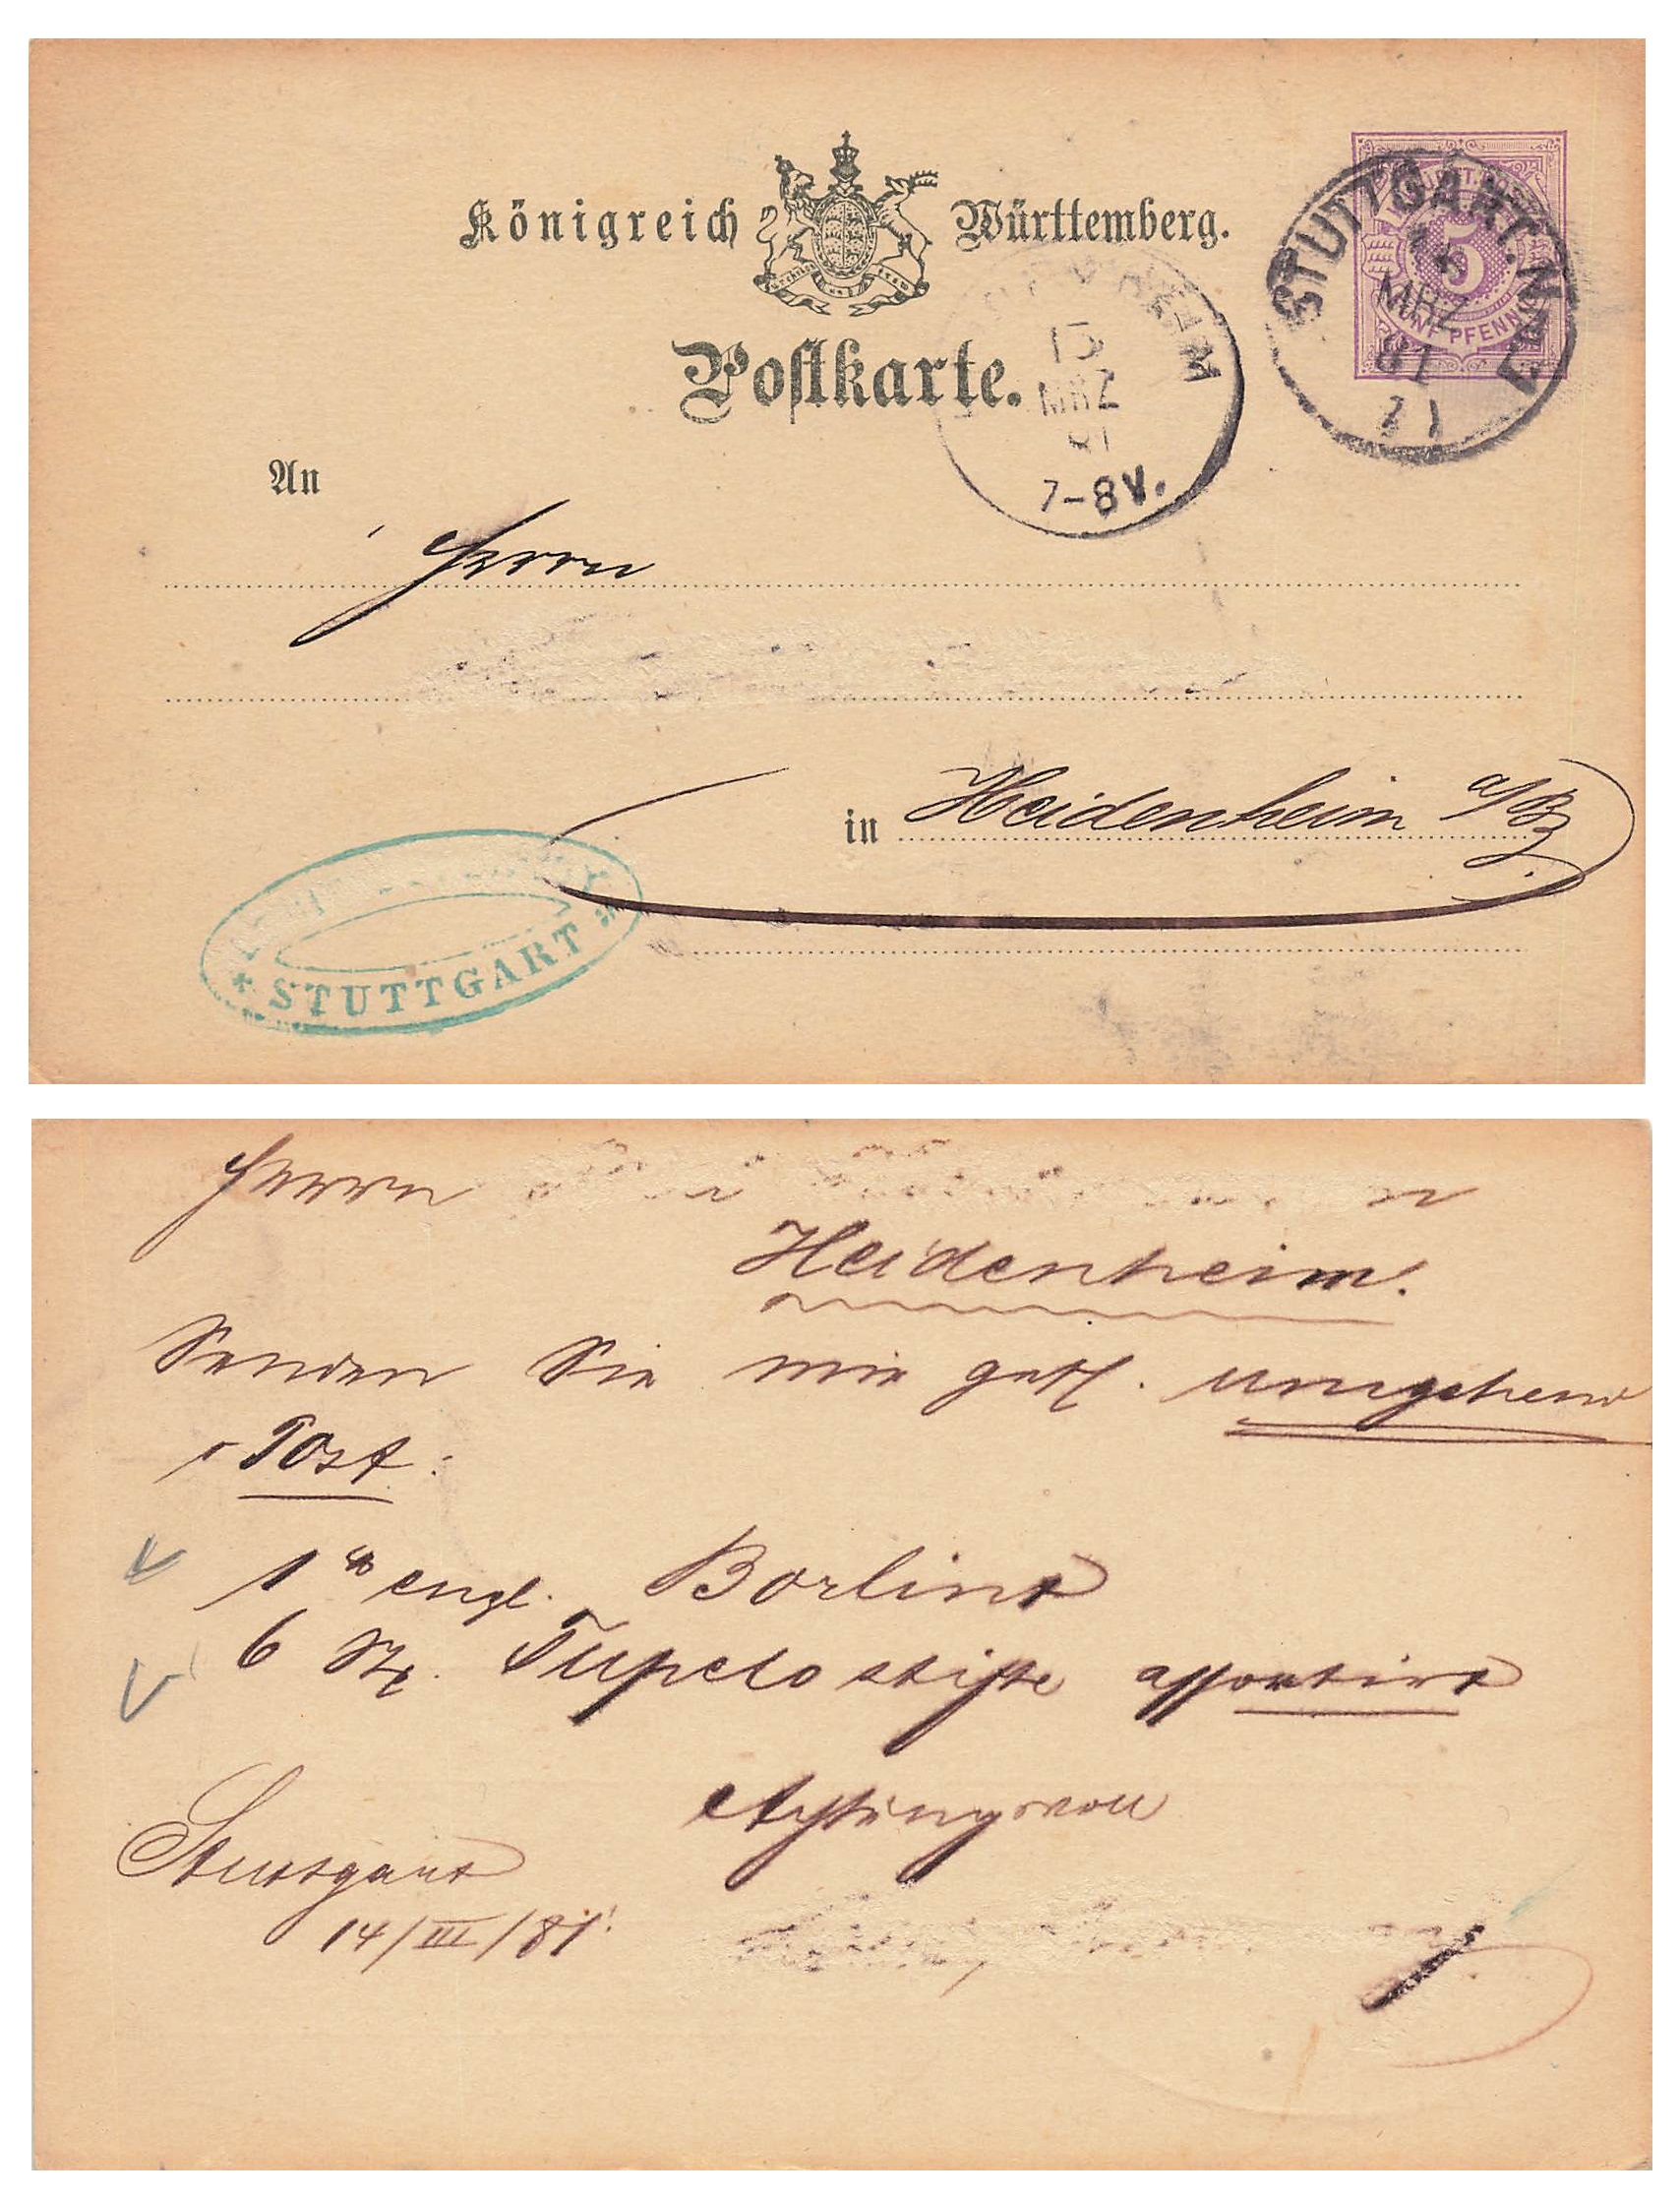 Königreich Württemberg.
Furchtlos und trew
Postkarte.
STUTTGART.
14
MRZ
81
HEIM
15
MRZ
81
7-8V.
FÜNF PFENNIG
5
An
Herrn
in Heidenheim a/Bz.
* STUTTGART *
Herrn
Heidenheim.
Senden Sie mir gefl. umgehend
pr Post:
1 engl. Borlint
6 St. Tupelostifte assortirt
Achtungsvoll
Stuttgart
14/III/81.